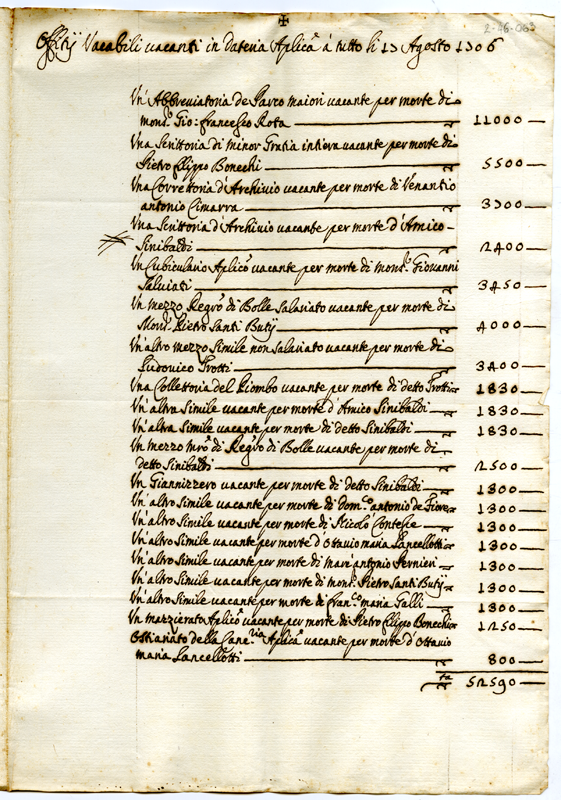 2-46-003
Offitij Vacabili vacanti in Dateria Aplica à tutto li 17 Agosto 1706
Un' Abbreviatoria de Parco maiori vacante per morte di
mons.r Gio: francesco Rota 11000
Una Scrittoria di minor Gratia intiera vacante per morte di
Pietro filippo Bonechi 5500
Una Correttoria d'Archivio vacante per morte di Venantio
antonio Cimarra 3700
Una Scrittoria d'Archivio vacante per morte d'Amico
Sinibaldi 2400
Un Cubiculario Aplico vacante per morte di mons.r Giovanni
Salviati 3450
Un mezzo Regro di Bolle Salariato vacante per morte di
Mons.r Pietro Santi Butij 4000
Un'altro mezzo Simile non salariato vacante per morte di
Ludovico Trotti 3400
Una Collettoria del Piombo vacante per morte di detto Trotti 1830
Un'altra simile vacante per morte d'Amico Sinibaldi 1830
Un'altra simile vacante per morte di detto Sinibaldi 1830
Un mezzo mro di Regro di Bolle vacante per morte di
detto Sinibaldi 2500
Un Giannizzero vacante per morte di detto Sinibaldi 1300
Un'altro Simile vacante per morte di Dom.co antonio de Fiore 1300
Un'altro Simile vacante per morte di Nicolò 1300
Un'altro Simile vacante per morte d'Ottavio maria Lancellotti 1300
Un'altro Simile vacante per morte di marc'antonio Pernieri 1300
Un'altro Simile vacante per morte di mons.r Pietro Santi Butij 1300
Un'altro Simile vacante per morte di fran.co maria Galli 1300
Un mazzierato Aplico vacante per morte di Pietro filippo Bonechi 1250
Ostiariato della Canc.ria Aplica vacante per morte d'Ottavio
maria Lancellotti 800
52590